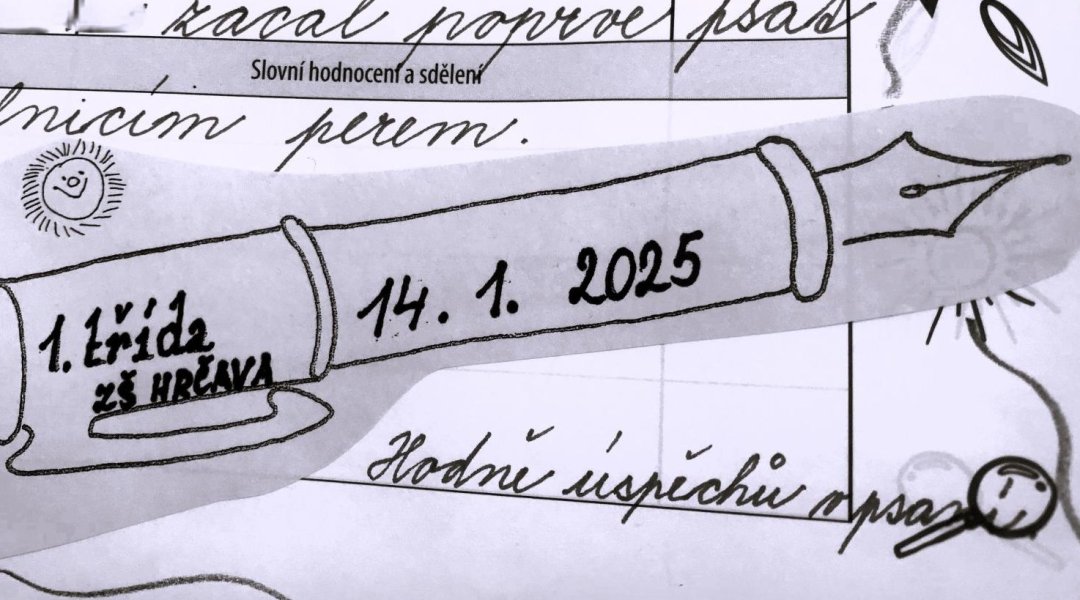 začal poprvé psát
Slovní hodnocení a sdělení
lnicím perem.
14. 1. 2025
1. třída
ZŠ HRČAVA
Hodně úspěchů v psaní